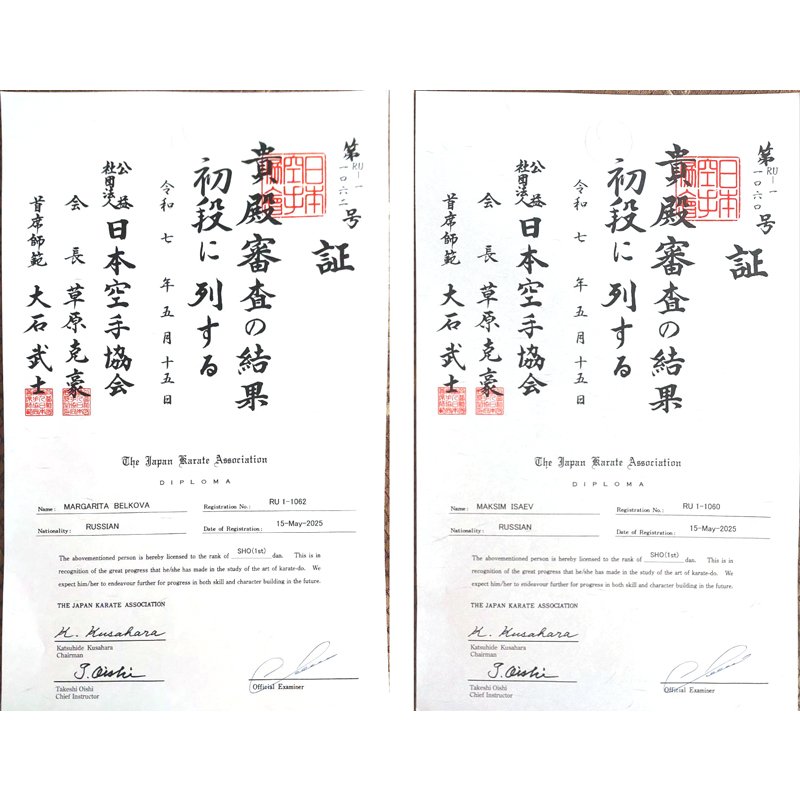 第RU－1
一〇六二号
証
貴殿審査の結果
初段に列する
令和七年五月十五日
公益
社団法人
日本空手協会
会長 草原克豪
首席師範 大石武士
日本
空手
協會
The Japan Karate Association
DIPLOMA
Name: MARGARITA BELKOVA
Registration No.: RU I-1062
Nationality: RUSSIAN
Date of Registration: 15-May-2025
The abovementioned person is hereby licensed to the rank of SHO(1st) dan. This is in
recognition of the great progress that he/she has made in the study of the art of karate-do. We
expect him/her to endeavour further for progress in both skill and character building in the future.
THE JAPAN KARATE ASSOCIATION
K. Kusahara
Katsuhide Kusahara
Chairman
T. Oishi
Takeshi Oishi
Chief Instructor
Official Examiner
第RU－1
一〇六〇号
証
貴殿審査の結果
初段に列する
令和七年五月十五日
公益
社団法人
日本空手協会
会長 草原克豪
首席師範 大石武士
日本
空手
協會
The Japan Karate Association
DIPLOMA
Name: MAKSIM ISAEV
Registration No.: RU I-1060
Nationality: RUSSIAN
Date of Registration: 15-May-2025
The abovementioned person is hereby licensed to the rank of SHO(1st) dan. This is in
recognition of the great progress that he/she has made in the study of the art of karate-do. We
expect him/her to endeavour further for progress in both skill and character building in the future.
THE JAPAN KARATE ASSOCIATION
K. Kusahara
Katsuhide Kusahara
Chairman
T. Oishi
Takeshi Oishi
Chief Instructor
Official Examiner